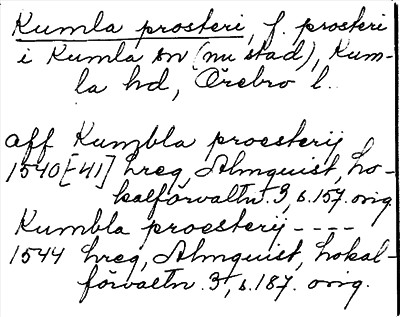 Kumla prosteri, f. prosteri
i Kumla sn (nu stad), Kum-
la hd, Örebro l.
aff Kumbla proesterij
1540[-41] hreg, Almquist, Lo-
kalförvaltn. 3, s. 157. orig
Kumbla proesterij - - - -
1544 hreg, Almquist, Lokal-
förvaltn. 3, s. 187. orig.